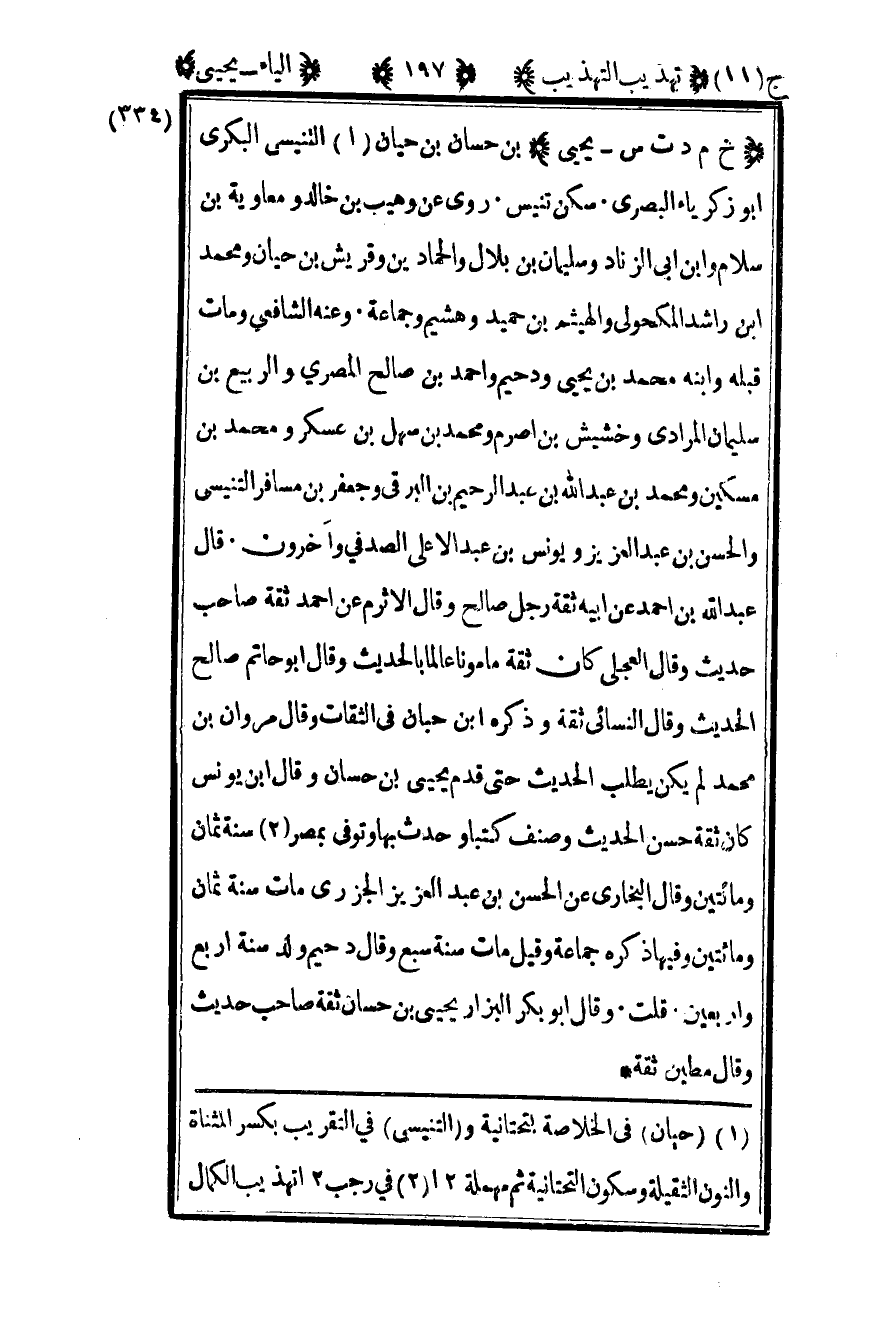 ج(١١) ﴿ تهذيب التهذيب ﴾ ﴿ ١٩٧ ﴾ ﴿ الياء ـ يحيى ﴾
(٣٣٤)
﴿ خ م د ت س ـ يحيى ﴾ بن حسان بن حيان (١) التنيسى البكرى
ابو زكرياء البصرى . سكن تنيس . روى عن وهيب بن خالد و معاوية بن
سلام وابن ابى الزناد وسليمان بن بلال والحمادين وقريش بن حيان ومحمد
ابن راشد المكحولى والهيثم بن حميد وهشيم وجماعة . وعنه الشافعي ومات
قبله وابنه محمد بن يحيى ودحيم واحمد بن صالح المصري والربيع بن
سليمان المرادى وخشيش بن اصرم ومحمد بن سهل بن عسكر و محمد بن
مسكين ومحمد بن عبدالله بن عبدالرحيم بن البرقى وجعفر بن مسافر التنيسى
والحسن بن عبد العزيز و يونس بن عبد الاعلى الصدفي وآخرون . قال
عبدالله بن احمد عن ابيه ثقة رجل صالح وقال الاثرم عن احمد ثقة صاحب
حديث وقال العجلى كان ثقة مامونا عالما بالحديث وقال ابو حاتم صالح
الحديث وقال النسائى ثقة و ذكره ابن حبان فى الثقات وقال مروان بن
محمد لم يكن يطلب الحديث حتى قدم يحيى بن حسان وقال ابن يونس
كان ثقة حسن الحديث وصنف كتبا و حدث بها وتوفى بمصر (٢) سنة ثمان
ومائتين وقال البخارى عن الحسن بن عبد العزيز الجزرى مات سنة ثمان
ومائتين وفيها ذكره جماعة وقيل مات سنة سبع وقال دحيم ولد سنة اربع
واربعين . قلت . وقال ابو بكر البزار يحيى بن حسان ثقة صاحب حديث
وقال مطين ثقة *
(١) (حيان) فى الخلاصة بتحتانية و(التنيسى) في التقريب بكسر المثناة
والنون الثقيلة وسكون التحتانية ثم مهملة ١٢ (٢) في رجب ١٢ تهذيب الكمال